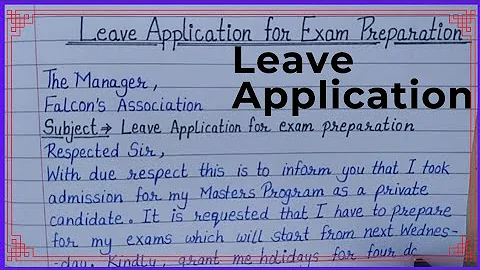 Leave Application for Exam Preparation
Leave
Application
The Manager,
Falcon's Association
Subject→ Leave Application for exam preparation
Respected Sir,
With due respect this is to inform you that I took
admission for my Masters Program as a private
candidate. It is requested that I have to prepare
for my exams which will start from next Wednes-
-day. Kindly, grant me holidays for four